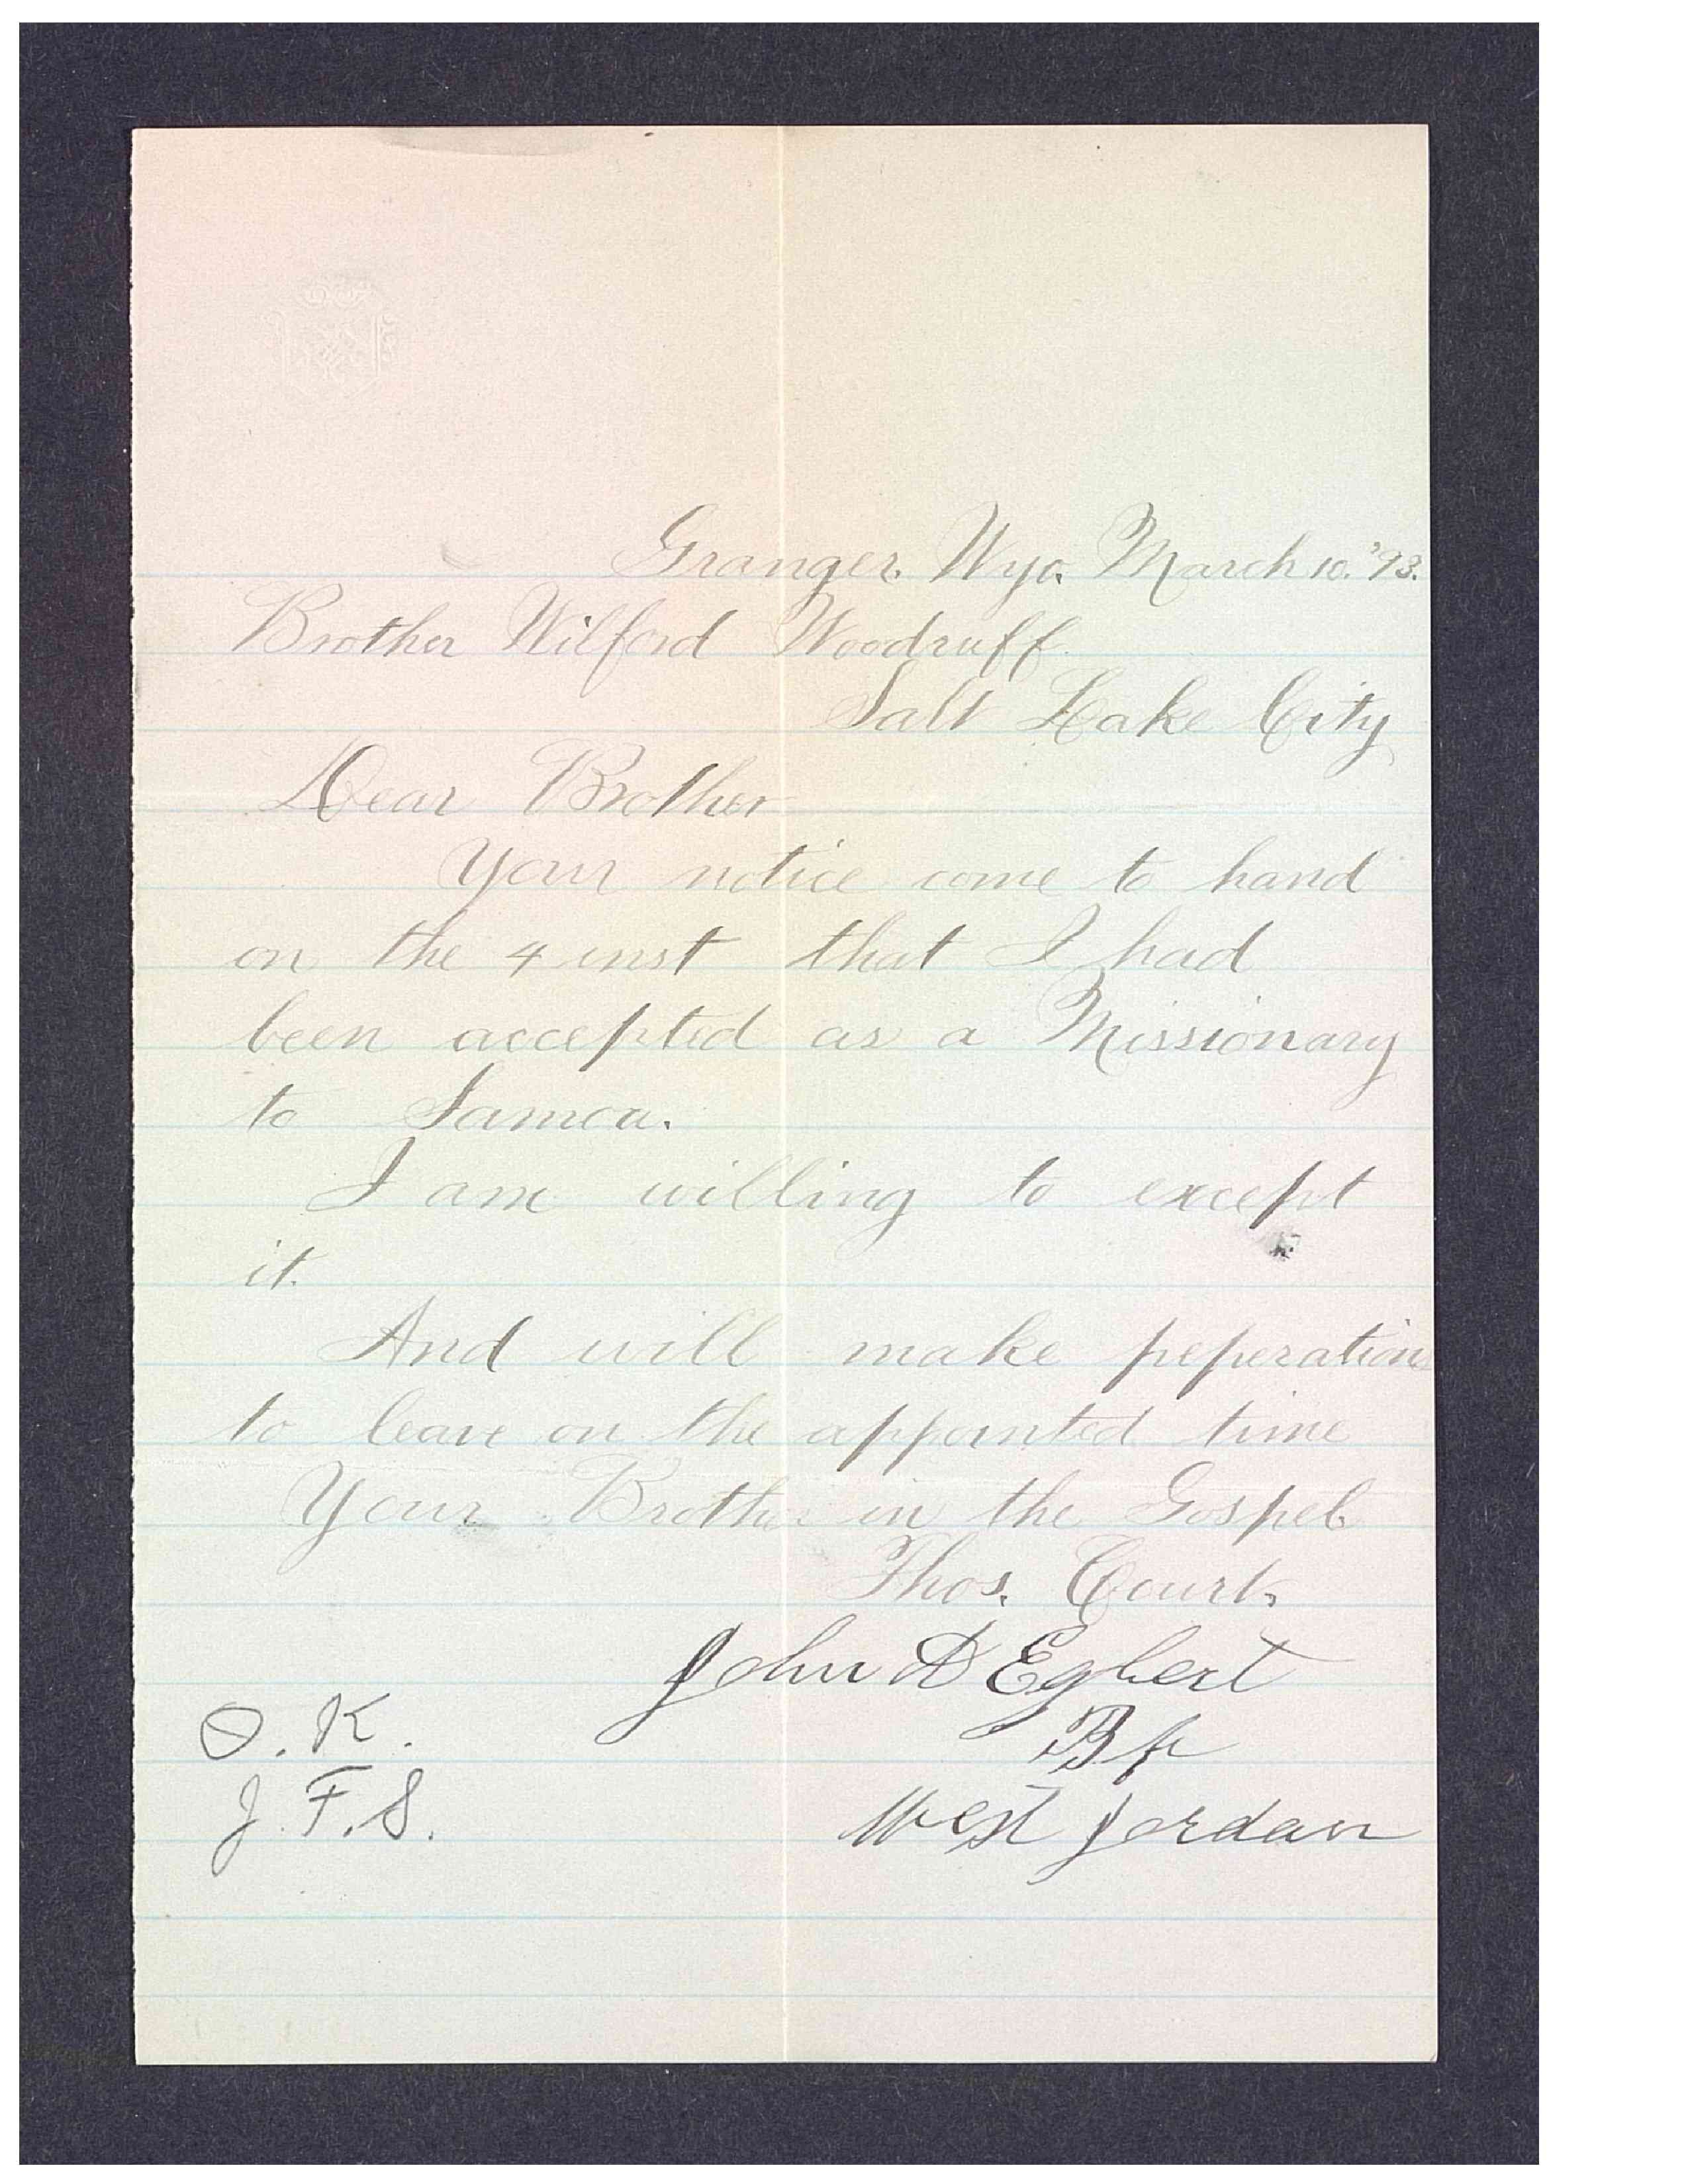 Granger. Wyo. March 10. '93.
Brother Wilford Woodruff.
Salt Lake City
Dear Brother
Your notice come to hand
on the 4 inst that I had
been accepted as a Missionary
to Samoa.
I am willing to except
it.
And will make peperations
to leave on the appointed time
Your Brother in the Gospel.
Thos. Court.
John A Egbert
Bp
West Jordan
O. K.
J. F. S.